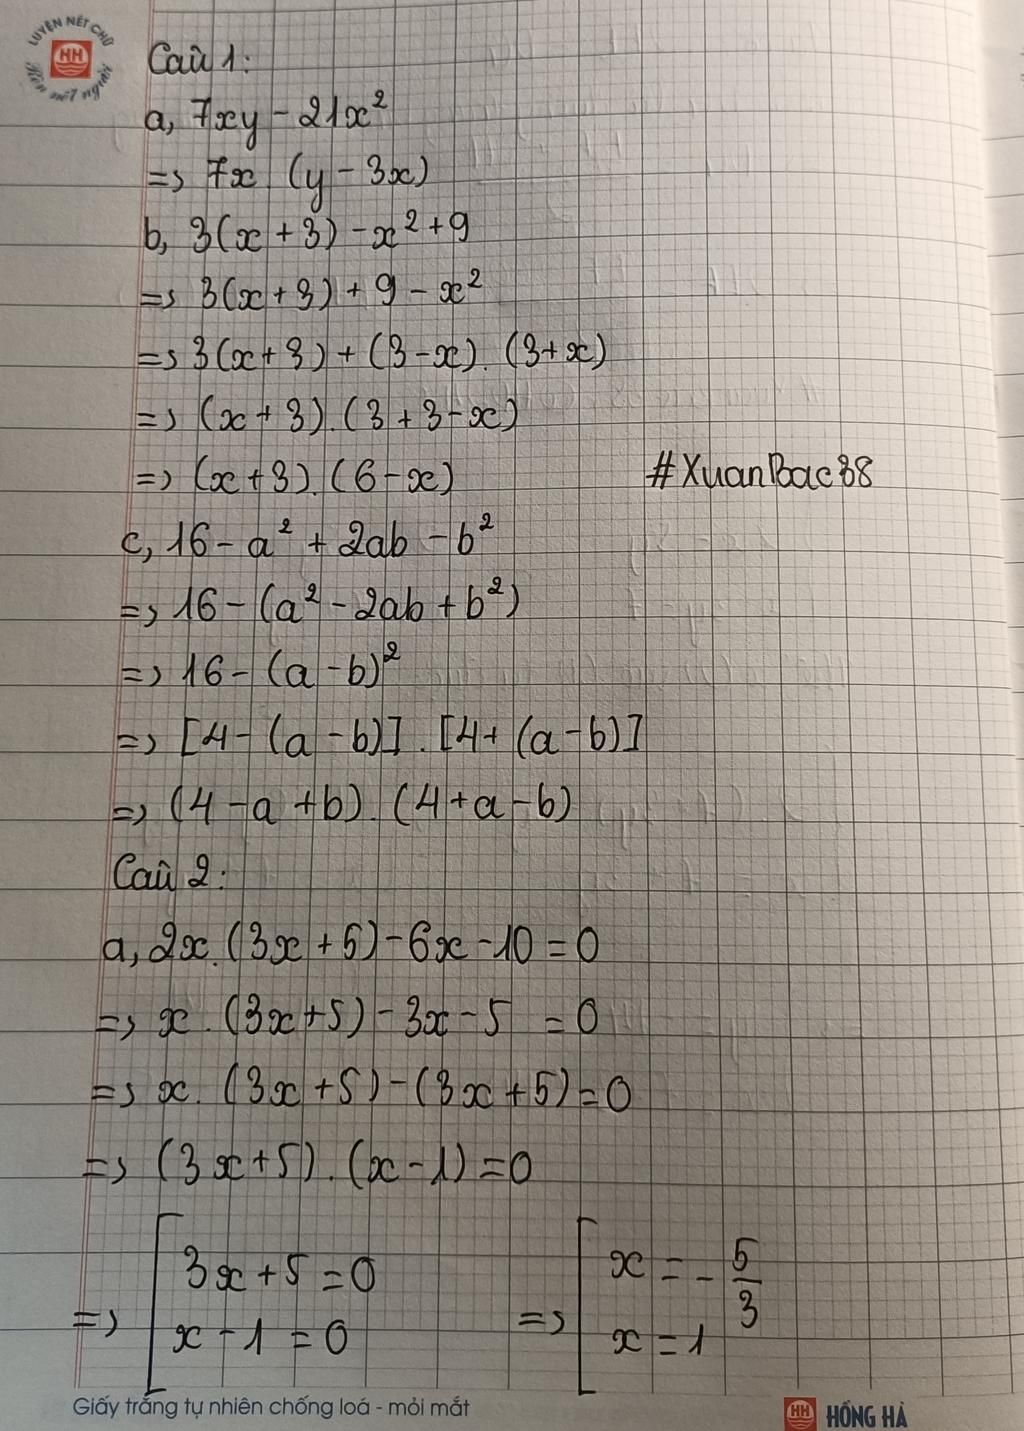 LUYỆN NÉT CHỮ
HH
Rèn nết người
Câu 1:
a, 7xy - 21x²
=> 7x (y - 3x)
b, 3(x + 3) - x² + 9
=> 3(x + 3) + 9 - x²
=> 3(x + 3) + (3 - x) . (3 + x)
=> (x + 3) . (3 + 3 - x)
=> (x + 3) . (6 - x) #XuanBac38
c, 16 - a² + 2ab - b²
=> 16 - (a² - 2ab + b²)
=> 16 - (a - b)²
=> [4 - (a - b)] . [4 + (a - b)]
=> (4 - a + b) . (4 + a - b)
Câu 2:
a, 2x . (3x + 5) - 6x - 10 = 0
=> x . (3x + 5) - 3x - 5 = 0
=> x . (3x + 5) - (3x + 5) = 0
=> (3x + 5) . (x - 1) = 0
=> [ 3x + 5 = 0 => [ x = - 5/3
x - 1 = 0 x = 1
Giấy trắng tự nhiên chống loá - mỏi mắt HH HỒNG HÀ